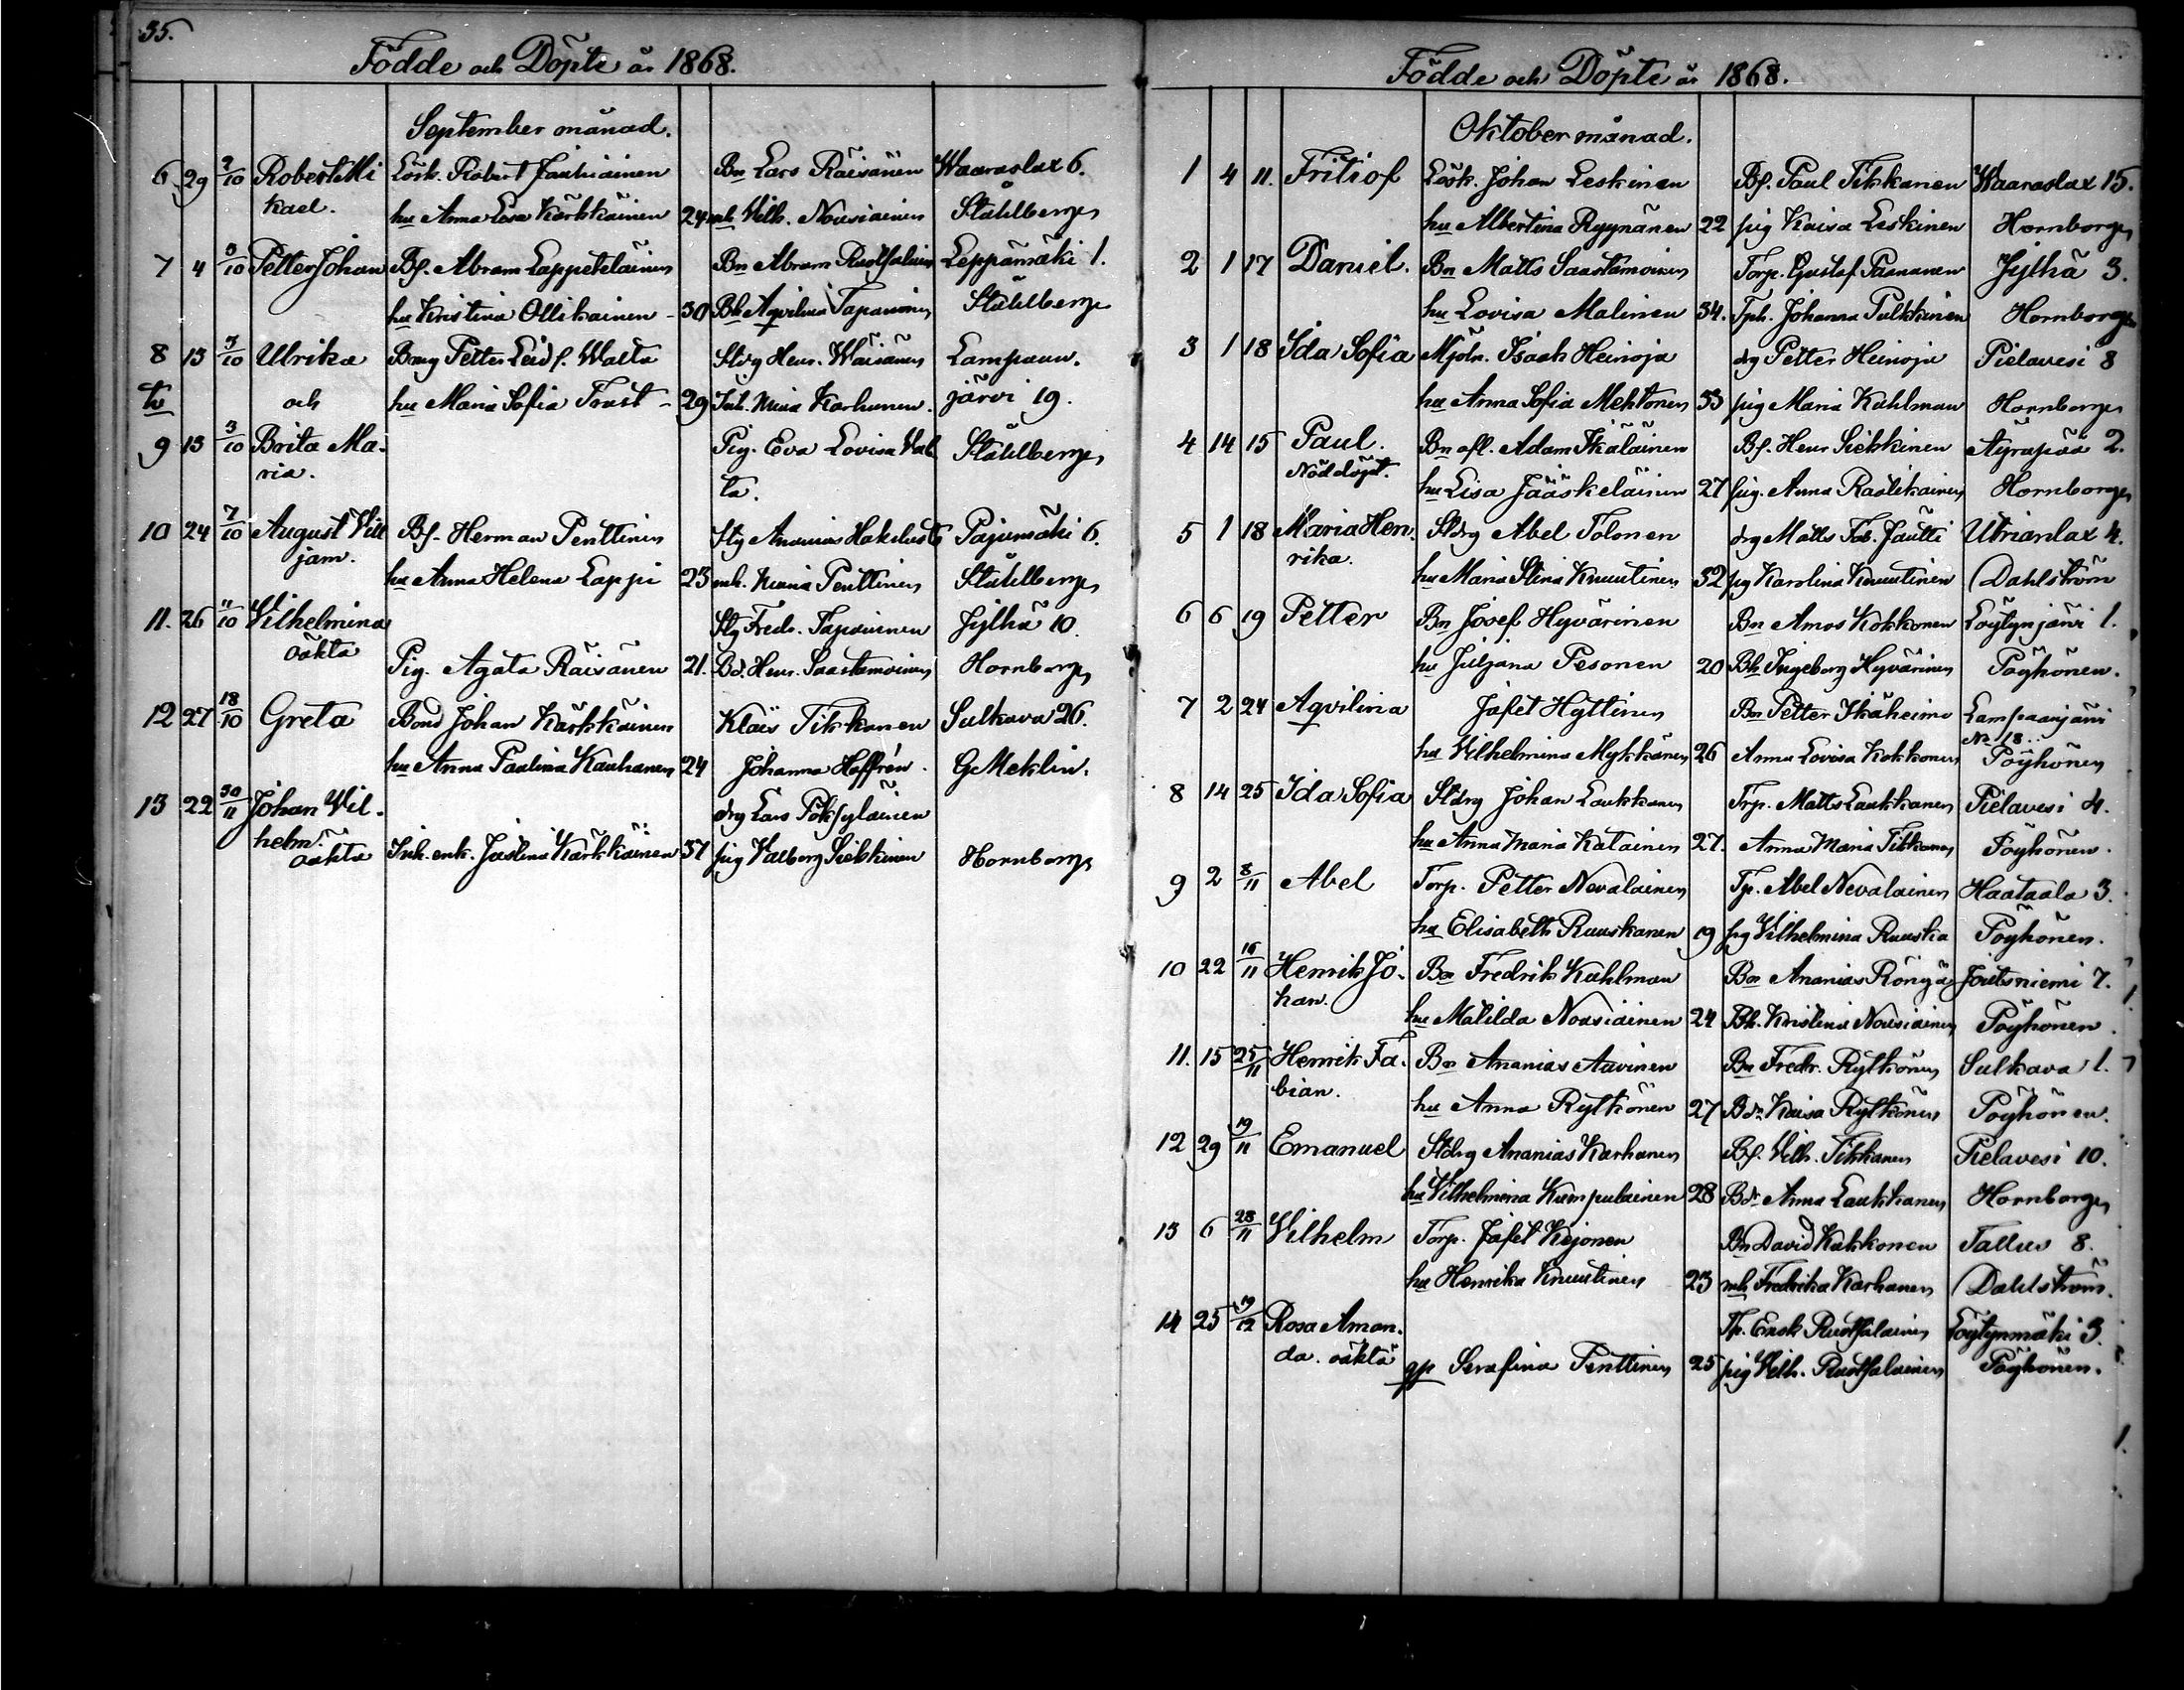 35.
Födde och Döpte år 1868.
September månad.
6 29 2/10 Robert Mi Lösk. Robert Jauhiainen Bn Lars Räisänen Waaraslax 6.
kael. hu Anna Lisa Kärkkäinen 24 mh. Vilh. Nousiainen Ståhlberg
7 4 3/10 Petter Johan Bf. Abram Lappeteläinen Bn Abram Ruotsalain Leppämäki 1.
hu Kristina Ollikainen - 30 Bh Aqvilina Tapaninen Ståhlberg
8 13 3/10 Ulrika Petter Leid f. Walta Stdrg Henr. Wäisänen Lampaan-
tv och hu Maria Sofia Trast - 29 Inh. Maria Karhunen. järvi 19.
9 13 3/10 Brita Ma- Pig. Eva Lovisa Wal Ståhlberg
ria. ta.
10 24 7/10 August Vill Bf. Herman Penttinen Stg Ananias Hakulin Pajumäki 6.
jam. hu Anna Helena Lappi 23 mh. Maria Penttinen Ståhlberg
11. 26 11/10 Vilhelmina Stg Fredr. Tapaninen Jylhä 10.
oäkta Pig. Agata Räisänen 21. Bd. Henr. Saastamoinen Hornborg
12 27 18/10 Greta Bond Johan Kärkkäinen Klaës Tikkanen Sulkava 26.
hu Anna Paulina Kauhanen 24 Johanna Hoffrén. G Meklin.
13 22 30/11 Johan Vil- drg Lars Pöksyläinen
helm. oäkta Inh. enk. Justina Kärkkäinen 37 pig Valborg Siekkinen Hornborg
Födde och Döpte år 1868.
Oktober månad.
1 4 11. Fritiof Lösk. Johan Leskinen Bf. Paul Tikkanen Waaraslax 15.
hu Albertina Ryynänen 22 pig Kaisa Leskinen Hornborg
2 1 17 Daniel. Bn Matts Saastamoinen Torp. Gustaf Paananen Jylhä 3.
hu Lovisa Malinen 34. Tph. Johanna Pulkkinen Hornborg
3 1 18 Ida Sofia Mjöln. Isaak Heinoja drg Petter Heinoja Pielavesi 8
hu Anna Sofia Mehtonen 33 pig Maria Kuhlman Hornborg
4 14 15 Paul. Bn afl. Adam Ikäläinen Bf. Henr Siekkinen Äyräpää 2.
Nöddöpt. hu Lisa Jääskeläinen 27 pig. Anna Rautikainen Hornborg
5 1 18 Maria Hen- Stdrg Abel Tolonen drg Matts Fab. Jautti Utrianlax 4.
rika. hu Maria Stina Knuutinen 32 pig Karolina Knuutinen Dahlström
6 6 19 Petter Bn Josef Hyvärinen Bn Amos Kokkonen Löytynjärvi 1.
hu Juljana Pesonen 20 Bh Ingeborg Hyvärinen Pöyhönen.
7 2 24 Aqvilina Jafet Hyttinen Bn Petter Ikäheimo Lampaanjärvi
No 18.
hu Vilhelmina Mykkänen 26 Anna Lovisa Kokkonen Pöyhönen
8 14 25 Ida Sofia Stdrg Johan Laukkanen Trp. Matts Laukkanen Pielavesi 4.
hu Anna Maria Katainen 27. Anna Maria Tikkanen Pöyhönen.
9 2 8/11 Abel Torp. Petter Nevalainen Tp. Abel Nevalainen Haataala 3.
hu Elisabeth Ruuskanen 19 pig Vilhelmina Ruuska Pöyhönen.
10 22 16/11 Henrik Jo- Bn Fredrik Kuhlman Bn Ananias Rönyä Joutsniemi 7.
han. hu Matilda Nousiainen 24 Bh. Kristina Nousiainen Pöyhönen.
11. 15 25/11 Henrik Fa- Bn Ananias Aavinen Bn Fredr. Rytkönen Sulkava 1.
bian. hu Anna Rytkönen 27 Bdr Kaisa Rytkönen Pöyhönen.
12 29 19/11 Emanuel Stdrg Ananias Karhanen Bf. Vilh. Tikkanen Pielavesi 10.
hu Vilhelmina Kumpulainen 28 Bdr Anna Laukkanen Hornborg
13 6 28/11 Vilhelm Torp. Jafet Kejonen Bn David Kukkonen Tallus 8.
hu Henrika Knuutinen 23 mh Fredrika Karhanen Dahlström.
14 25 19/12 Rosa Aman- Tp. Enok Ruotsalainen Löytynmäki 3.
da. oäkta gp Serafina Penttinen 25 pig Vilh. Ruotsalainen Pöyhönen.